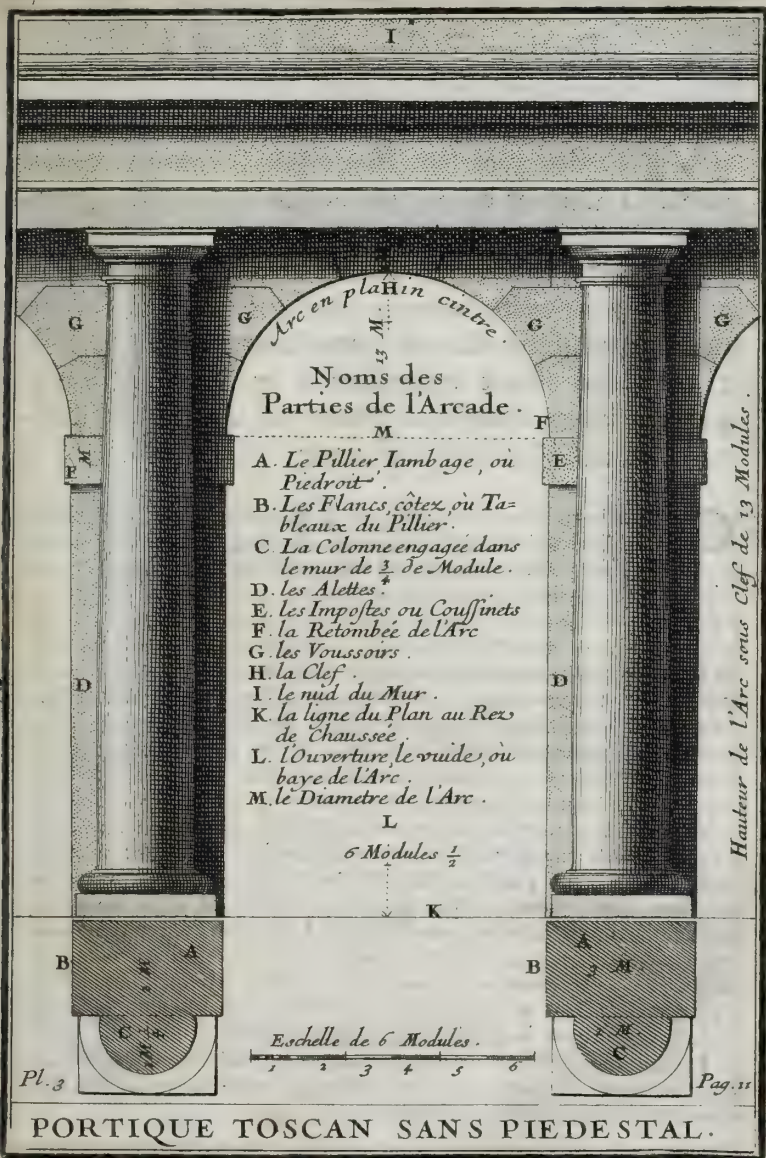 I
G
G
G
G
Arc en plain cintre.
H
13 M.
Noms des
Parties de l'Arcade.
M
F
F
M
E
A. Le Pillier, Iambage, où
Piedroit.
B. Les Flancs, côtez, où Ta=
bleaux du Pillier.
C La Colonne engageé dans
le mur de 3/4 de Module.
D. les Alettes.
E. les Impoſtes ou Couſſinets
F. la Retombée de l'Arc
G. les Voussoirs.
H. la Clef.
I. le nüd du Mur.
K. la ligne du Plan au Rez
de Chaussée.
L. l'Ouverture, le vuide, où
baye de l'Arc.
M. le Diametre de l'Arc.
D
D
L
6 Modules 1/2
K
Hauteur de l'Arc sous Clef de 13 Modules.
B
A
B
A
3 M.
C
2 M.
C
Eschelle de 6 Modules.
1 2 3 4 5 6
Pl. 3
Pag. 11
PORTIQUE TOSCAN SANS PIEDESTAL.